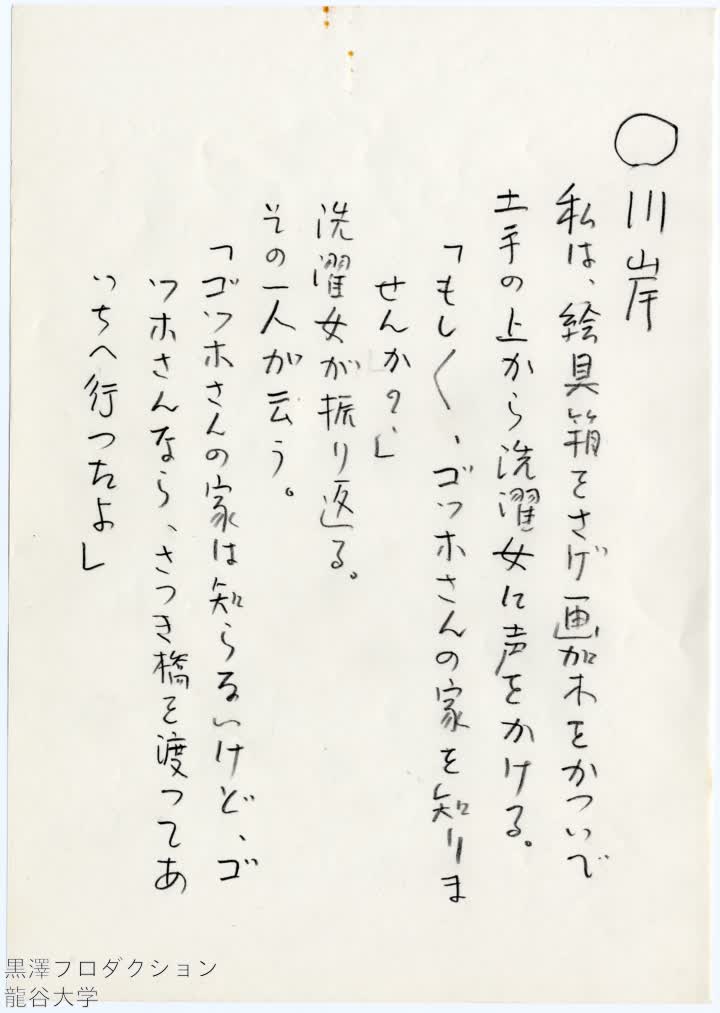 ○川岸
私は、絵具箱をさげ画架をかついで
土手の上から洗濯女に声をかける。
「もし〱、ゴッホさんの家を知りま
せんか?」
洗濯女が振り返る。
その一人が云う。
「ゴツホさんの家は知らないけど、ゴ
ツホさんなら、さつき橋を渡つてあ
いちへ行つたよ」
黒澤プロダクション
龍谷大学